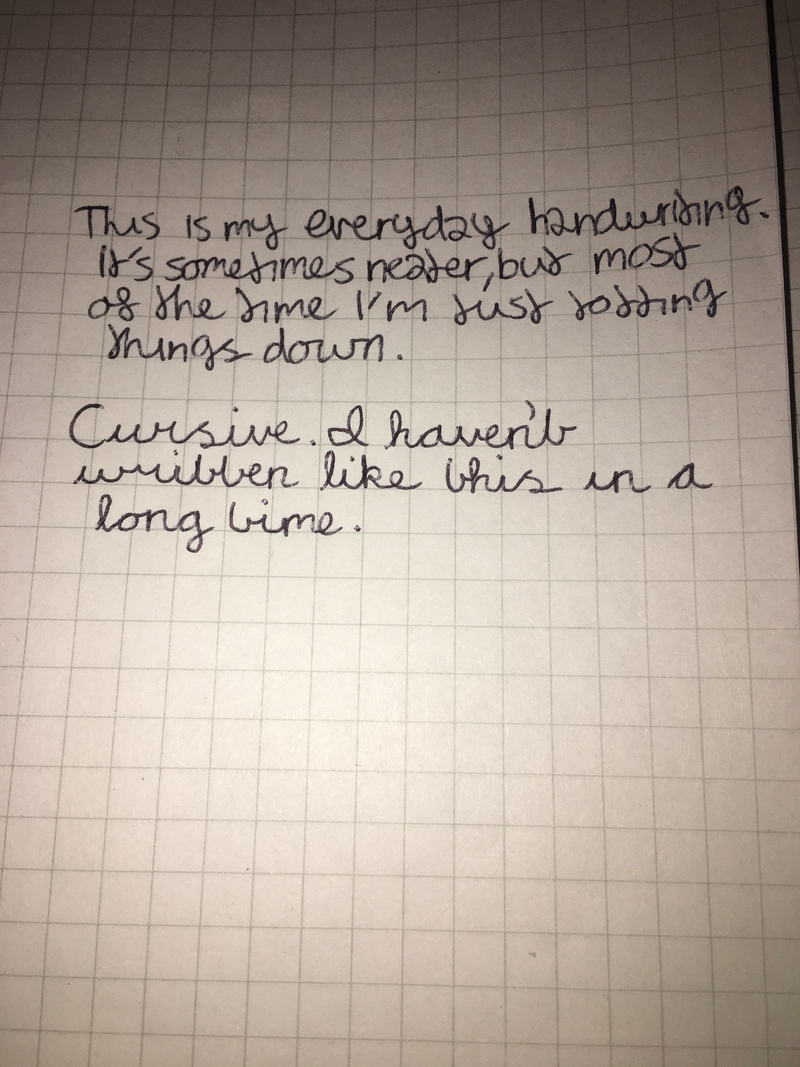 This is my everyday handwriting.
It's sometimes neater, but most
of the time I'm just jotting
things down.
Cursive. I haven't
written like this in a
long time.